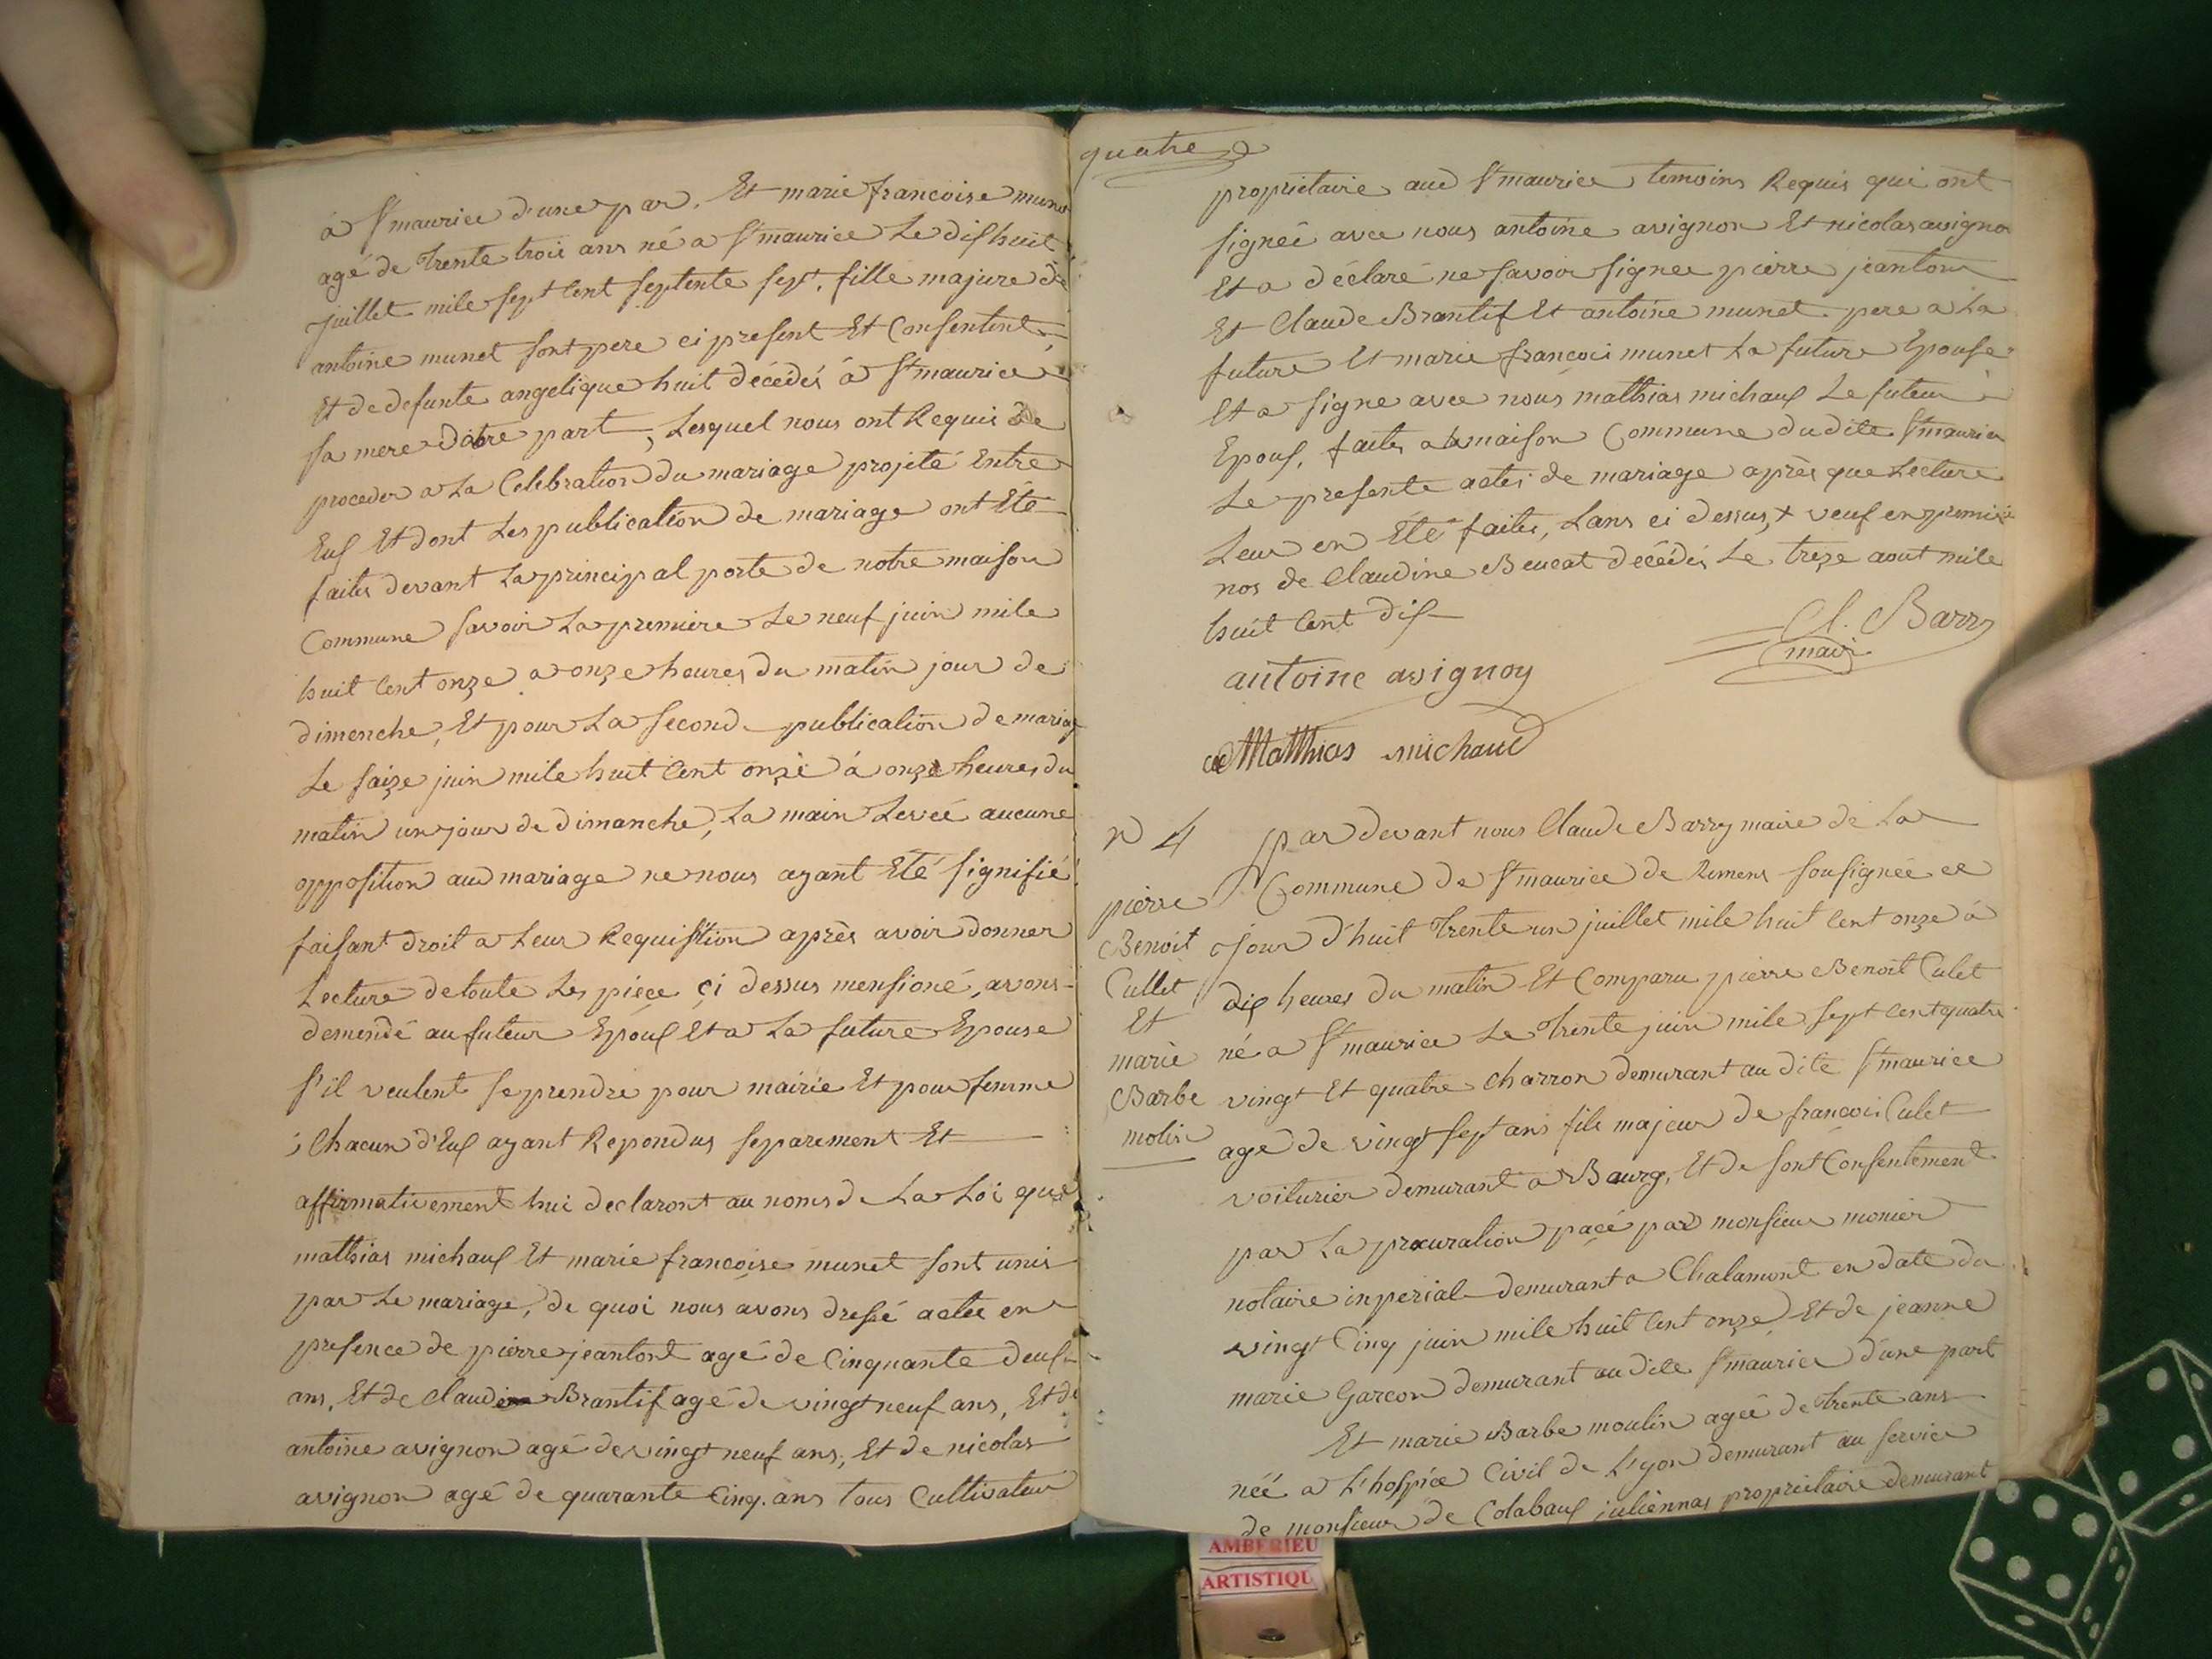 à St maurice d'une par. Et marie francoise munet
agé de trente trois ans né a St maurice Le dishuit
juillet mile sept Cent septente sept, fille majure de
antoine munet sont pere ci present Et Consentent
Et de defunte angelique huit décédés à St maurice
sa mere d'otre part, Lesquel nous ont Requis de
proceder a La Celebration du mariage projeté Entre
Eux Et dont Les publication de mariage ont Eté
faites devant La principal porte de notre maison
Commune savoir La premiere Le neuf juin mile
huit Cent onze a onze heures du matin jour de
dimenche, Et pour La second publication de mariag
Le saize juin mile huit Cent onze à onze heures du
matin un jour de dimanche, La main Leveé aucune
opposition aud mariage ne nous ayant Eté signifié
faisant droit a Leur Requisition après avoir donner
Lecture de toute Les piéce çi dessus mensioné, avons
demendé au futeur Epoux Et a La future Epouse
s'il veulent se prendre pour mairie Et pour femme
Chacun d'Eux ayant Repondus separement Et
affirmativement hui declaront au noms de La Loi que
mathias michaux Et marie francoise munet sont unis
par Le mariage, de quoi nous avons dressé actee en
presence de pierre jeantont agé de Cinquante deux
ans, Et de Claude Brantif agé de vingt neuf ans, Et de
antoine avignon agé de vingt neuf ans, Et de nicolas
avignon agé de quarante Cinq ans tous Cultivateur
quatre
propriétaire aud St maurice temoins Requis qui ont
signeé avec nous antoine avignon Et nicolas avigno
Et a déclaré ne savoir signer pierre jeanton
Et Claude Brantif Et antoine munet pere a La
future Et marie francois munet La future Epouse
Et a signe avec nous mathias michaux Le futeur
Epoux, faites a La maison Commune dudite St maurice
Le presente actes de mariage après que Lecture
Leur en Eté faites, Lans ci dessus, + veuf en premiè
nos de Claudine Beucat décédés Le treze aout mile
huit Cent dix
Cl. Barry
mair
antoine avignoy
Matthias michaud
n 4 par devant nous Claude Barry maire de La
Commune de St maurice de Remens sousignée ce
jour d'huit trente un juillet mile huit Cent onze à
dix heures du matin Et Comparu pierre Benoit Culet
né a St maurice Le trente juin mile sept Cent quatre
vingt Et quatre Charron demurant au dite St maurice
agé de vingt sept ans fils majeur de francois Culet
voiturier demurant a Bourg, Et de sont Consentement
par La procuration pacé par monsieur monier
notaire inperial demurant a Chalamont en date du
vingt Cinq juin mile huit Cent onze, Et de jeanne
marie Garcon demurant au dite St maurice d'une part
Et marie Barbe moulin ageé de trente ans
néé a L'hospice Civil de L'yon demurant au service
de monsieur de Colabaux juliennas propriétaire demurant
pierre
Benoit
Cullet
Et
marie
Barbe
molin
AMBERIEU
ARTISTIQU